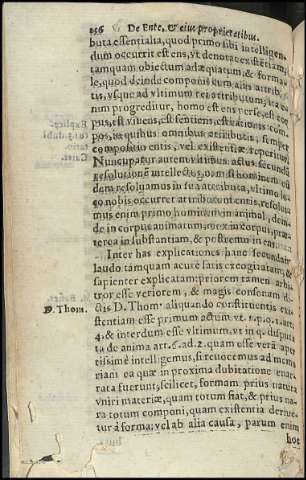 256 De Ente, & eius proprietatibus.
buta essentialia, quod primo sibi intelligen-
dum occurrit est ens, vt denotat existētiam,
tamquam obiectum adæquatum, & forma-
le, quod deinde componi cum alijs attribu-
tis, vsque ad vltimum rei attributum, ita
nim progreditur, homo est ens per se, est cor
pus, est viuens, est sentiens, est rationis com-
pos, ex quibus omnibus attributis, semper
compositio entis, vel existentiæ, reperitur.
Nuncupatur autem vltimus actus secundū
resolutionē intellectꝰ, quoniam si hominem ea-
dem resoluamus in sua attributa, vltimo lo-
co nobis occurret attributom entis, resolua
mus enim primo hominem in animal, dein-
de in corpus animatum, mox in corpus, præ-
terea in substantiam, & postremo in ens.
Inter has explicationes hanc secundam
laudo tamquam acute satis excogitatam, &
sapienter explicatam: priorem tamen arbi-
tror esse veriorem, & magis consonam di-
D. Thom. ctis D. Thom. aliquando constituentis exi-
stentiam esse primum actum vt 1. p. q. 5. art.
4. & interdum esse vltimum, vt in q. disputa
ta de anima art. 6. ad 2. quam esse verā aper
tissimè intelligemus, si reuocemus ad mem
riam ea quæ in proxima dubitatione enar-
rata fuerunt, scilicet, formam prius natura
vniri materiæ, quam totum fiat, & prius na-
ra totum componi, quam existentia deriue
tur à forma: vel ab alia causa, parum enim
hoc